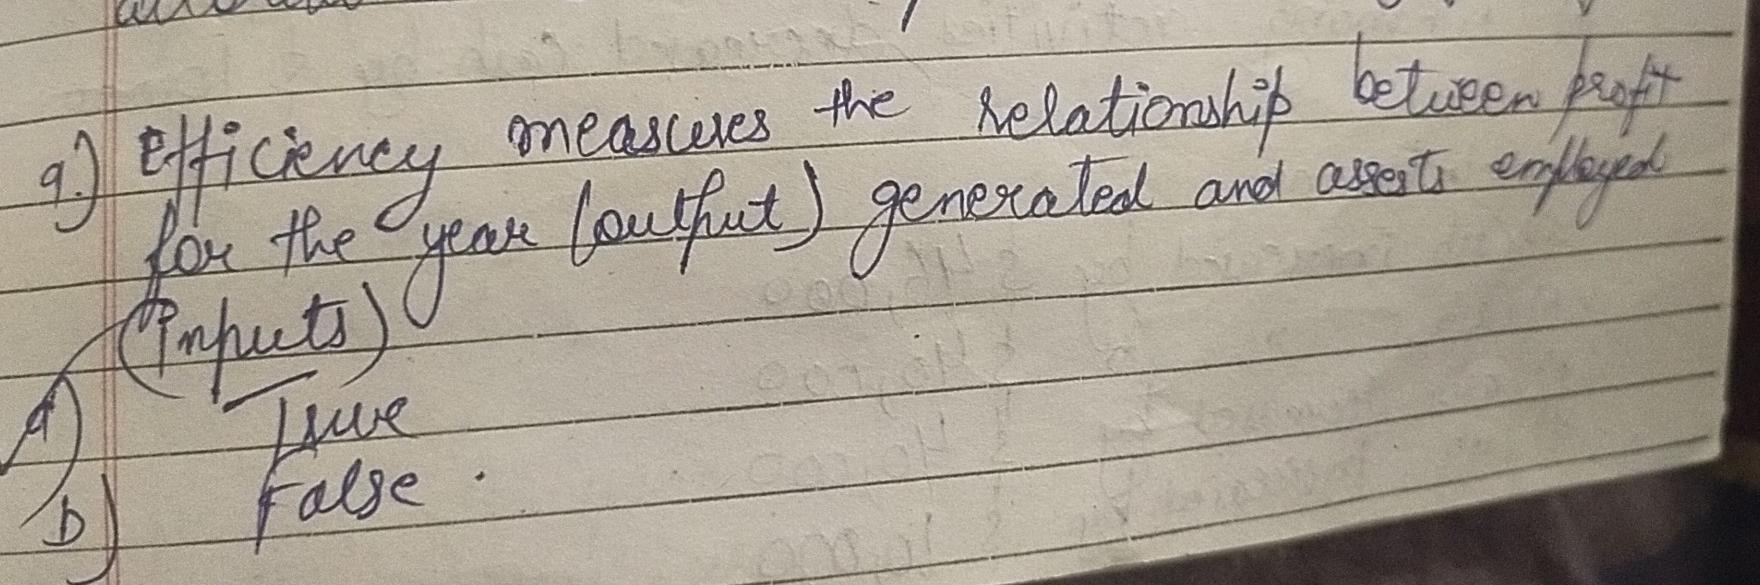 9.) Efficiency measures the relationship between profit
for the year (output) generated and assests employed
(Inputs)
a) True
b) False.